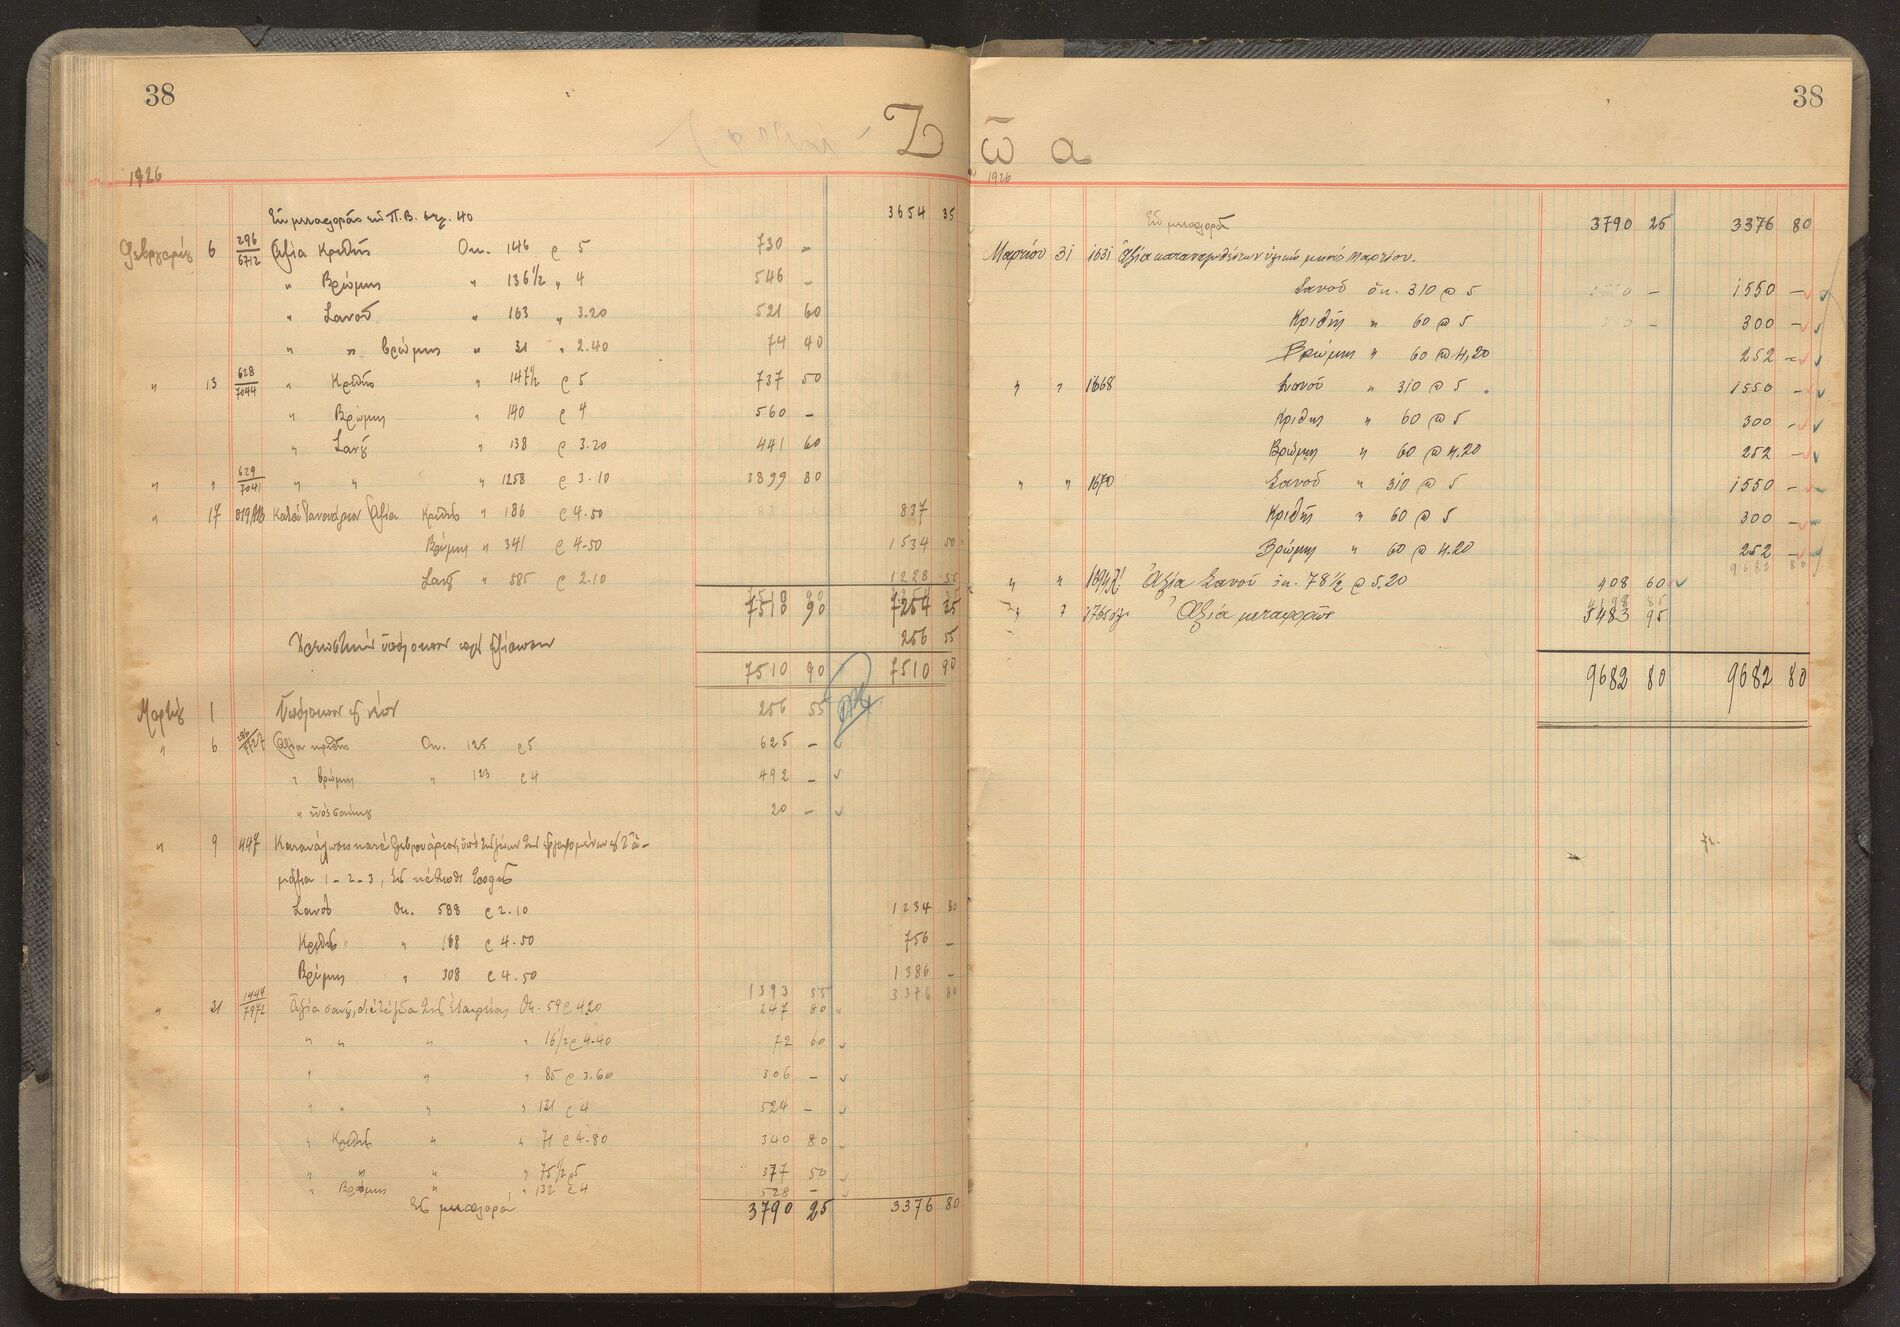 38
Ζ
1926
Εκ μεταφοράς εκ Π.Β. σελ. 40 3654 35
Φεβρουαρίου 6 296/6712 Αξία Κριθής Οκ. 146 @ 5 730 –
" Βρώμης " 136 1/2 " 4 546 –
" Σανού " 163 " 3.20 521 60
" " βρώμης " 31 " 2.40 74 40
" 13 628/7044 " Κριθής " 147 1/2 @ 5 737 50
" Βρώμης " 140 @ 4 560 –
" Σανού " 138 @ 3.20 441 60
" " 629/7041 " " " 1258 @ 3.10 3899 80
" 17 Κατά Ιανουάριον Αξία Κριθής " 186 @ 4.50 837
Βρώμης " 341 @ 4.50 1534 50
Σανού " 585 @ 2.10 1228 50
7510 90 7254 35
Χρεωστικόν υπόλοιπον προς εξίσωσιν 256 55
7510 90 7510 90
Μαρτίου 1 Υπόλοιπον εκ νέου 256 55
" 6 Αξία κριθής Οκ. 125 @ 5 625 –
" βρώμης " 123 @ 4 492 –
" 20 –
" 9 447 Κατανάλωσις κατά Φεβρουάριον υπό των ζώων των εργαζομένων
1-2-3,
Σανού Οκ. 588 @ 2.10 1234 80
Κριθής " 168 @ 4.50 756 –
Βρώμης " 308 @ 4.50 1386 –
1393 55 3376 80
" 21 1944/7972 Αξία σανού, διά τα ζώα της Εταιρείας Οκ. 59 @ 4.20 247 80
" " " " 16 1/2 @ 4.40 72 60
" " " 85 @ 3.60 306 –
" " " " 131 @ 4 524 –
" Κριθής " " 71 @ 4.80 340 80
" " " " 75 1/2 @ 5 377 50
" Βρώμης " " 132 @ 4 528 –
Εις μεταφοράν 3790 25 3376 80
38
ῶα
1926
Εκ μεταφοράς 3790 25 3376 80
Μαρτίου 31 1631 Αξία καταναλωθέντων υλικών μηνός Μαρτίου.
Σανού οκ. 310 @ 5 1550 –
Κριθής " 60 @ 5 300 –
Βρώμης " 60 @ 4,20 252 =
" " 1668 Σανού " 310 @ 5 1550 –
Κριθής " 60 @ 5 300 –
Βρώμης " 60 @ 4.20 252 –
" " 1670 Σανού " 310 @ 5 1550 –
Κριθής " 60 @ 5 300 –
Βρώμης " 60 @ 4.20 252 –
9682 80
" " Αξία Σανού οκ. 78 1/2 @ 5.20 408 60
4198 85
" " Αξία μεταφοράς 5483 95
9682 80 9682 80